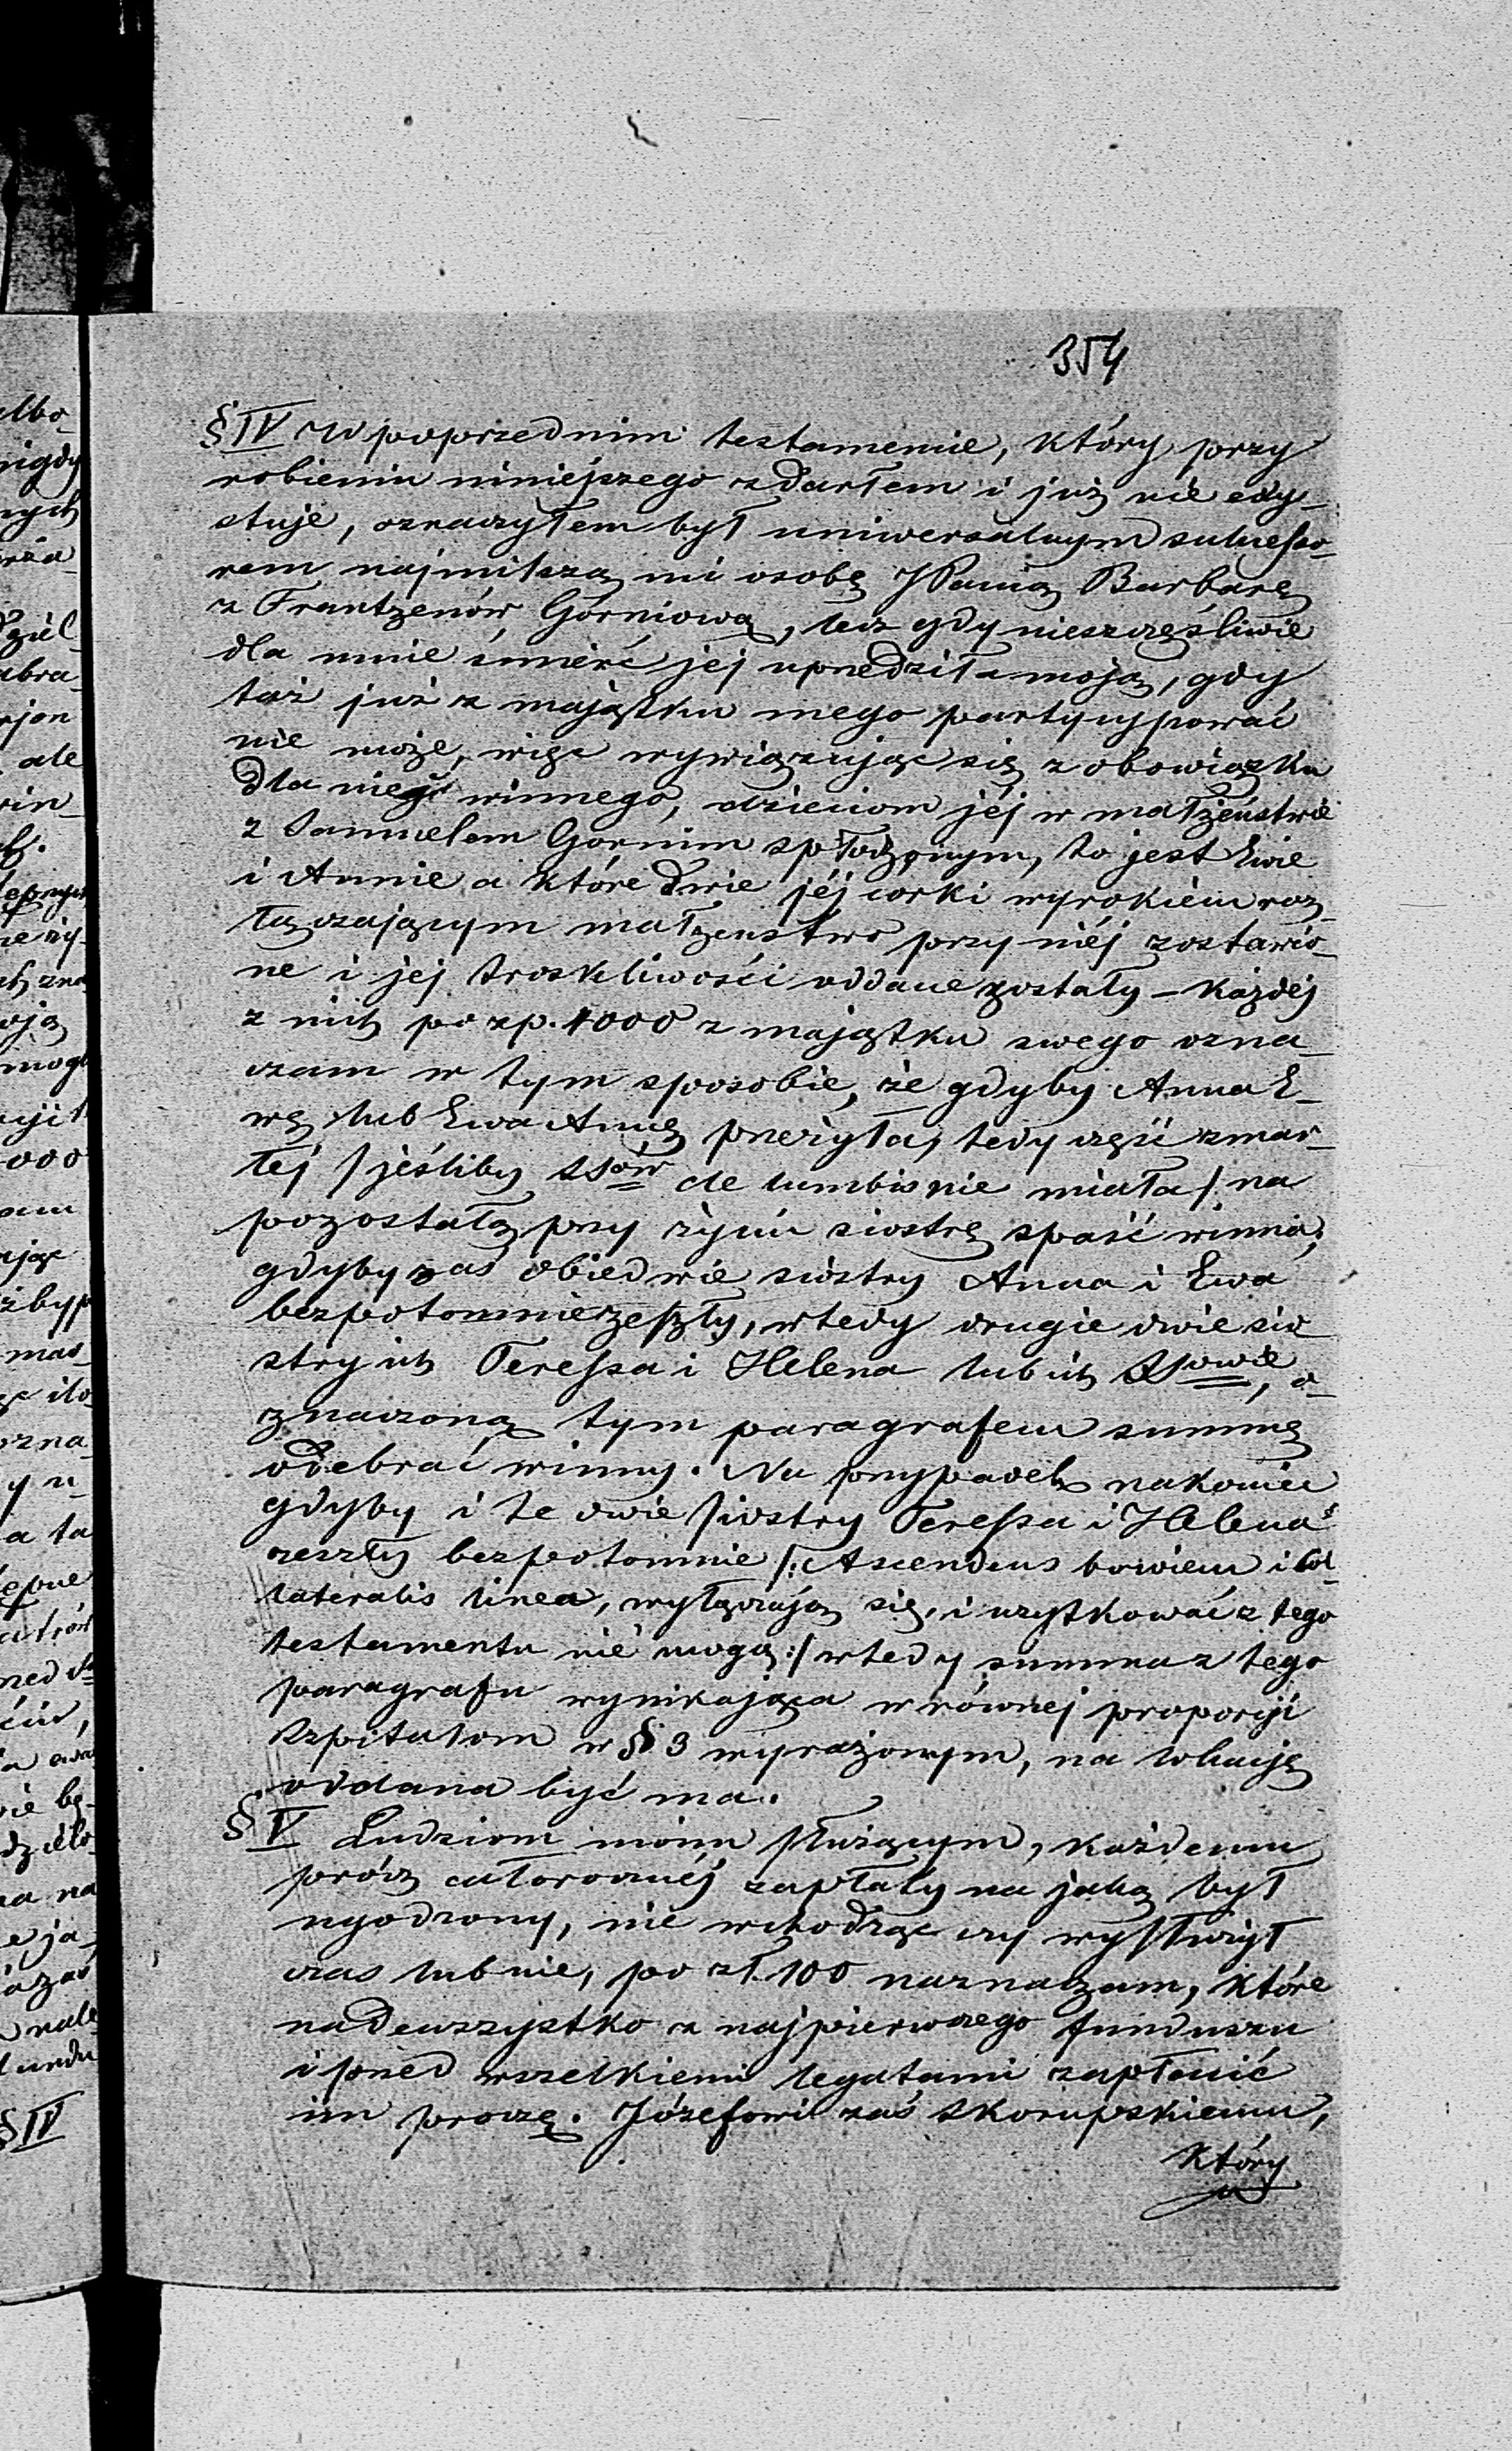 354
§ IV W poprzednim testamencie, który przy
robieniu niniejszego zdarłem i już nie edy-
stuje, oznaczyłem był uniwersalnym sukcesso-
rem najmilszą mi osobę JPanią Barbarę
z Frantzenów Górniową, lecz gdy nieszczęśliwie
dla mnie śmierć jej uprzedziła moją, gdy
taż już z majątku mego partycypować
nie może, więc wywiązując się z obowiązku
dla niej winnego, dzieciom jéj w małżeństwie
z Samuelem Gornim spłodzonym, to jest Ewie
i Annie a które dwie jéj corki wyrokiem roz-
łączającym małżeństwo przy niéj zostawio-
ne i jej troskliwości oddane zostały – każdéj
z nich po zp. 4000 z majątku swego ozna-
czam w tym sposobie, że gdyby Anna E-
wę lub Ewa Annę przeżyła, tedy część zmar-
łéj / jeśliby SSów de lumbis nie miała / na
pozostałą przy życiu siostrę spaść winna;
gdyby zaś obiedwie siostry Anna i Ewa
bezpotomnie zeszły, wtedy drugie dwie sio-
stry ich Teressa i Helena lub ich SSowie, o-
znaczoną tym paragrafem summę
odebrać winny. Na przypadek nakoniec
gdyby i te dwie siostry Teressa i Helena
zeszły bezpotomnie /: Ascendens bowiem i Col-
lateralis linea, wyłączają się, i uzytkować z tego
testamentu nie mogą :/ wtedy summa z tego
paragrafu wynikająca w równej proporcji
Szpitalom w § 3 wyrażonym, na lokację
oddana być ma.
§ V Ludziom moim służącym, każdemu
prócz całorocznéj zapłaty na jaką był
ugodzony, nie wchodząc czy wysłużył
czas lub nie, po zł. 100 naznaczam, które
nadewszystko z najpierwszego funduszu
i przed wszelkiemi legatami zapłacić
im proszę. Józefowi zaś Skorupskiemu,
który